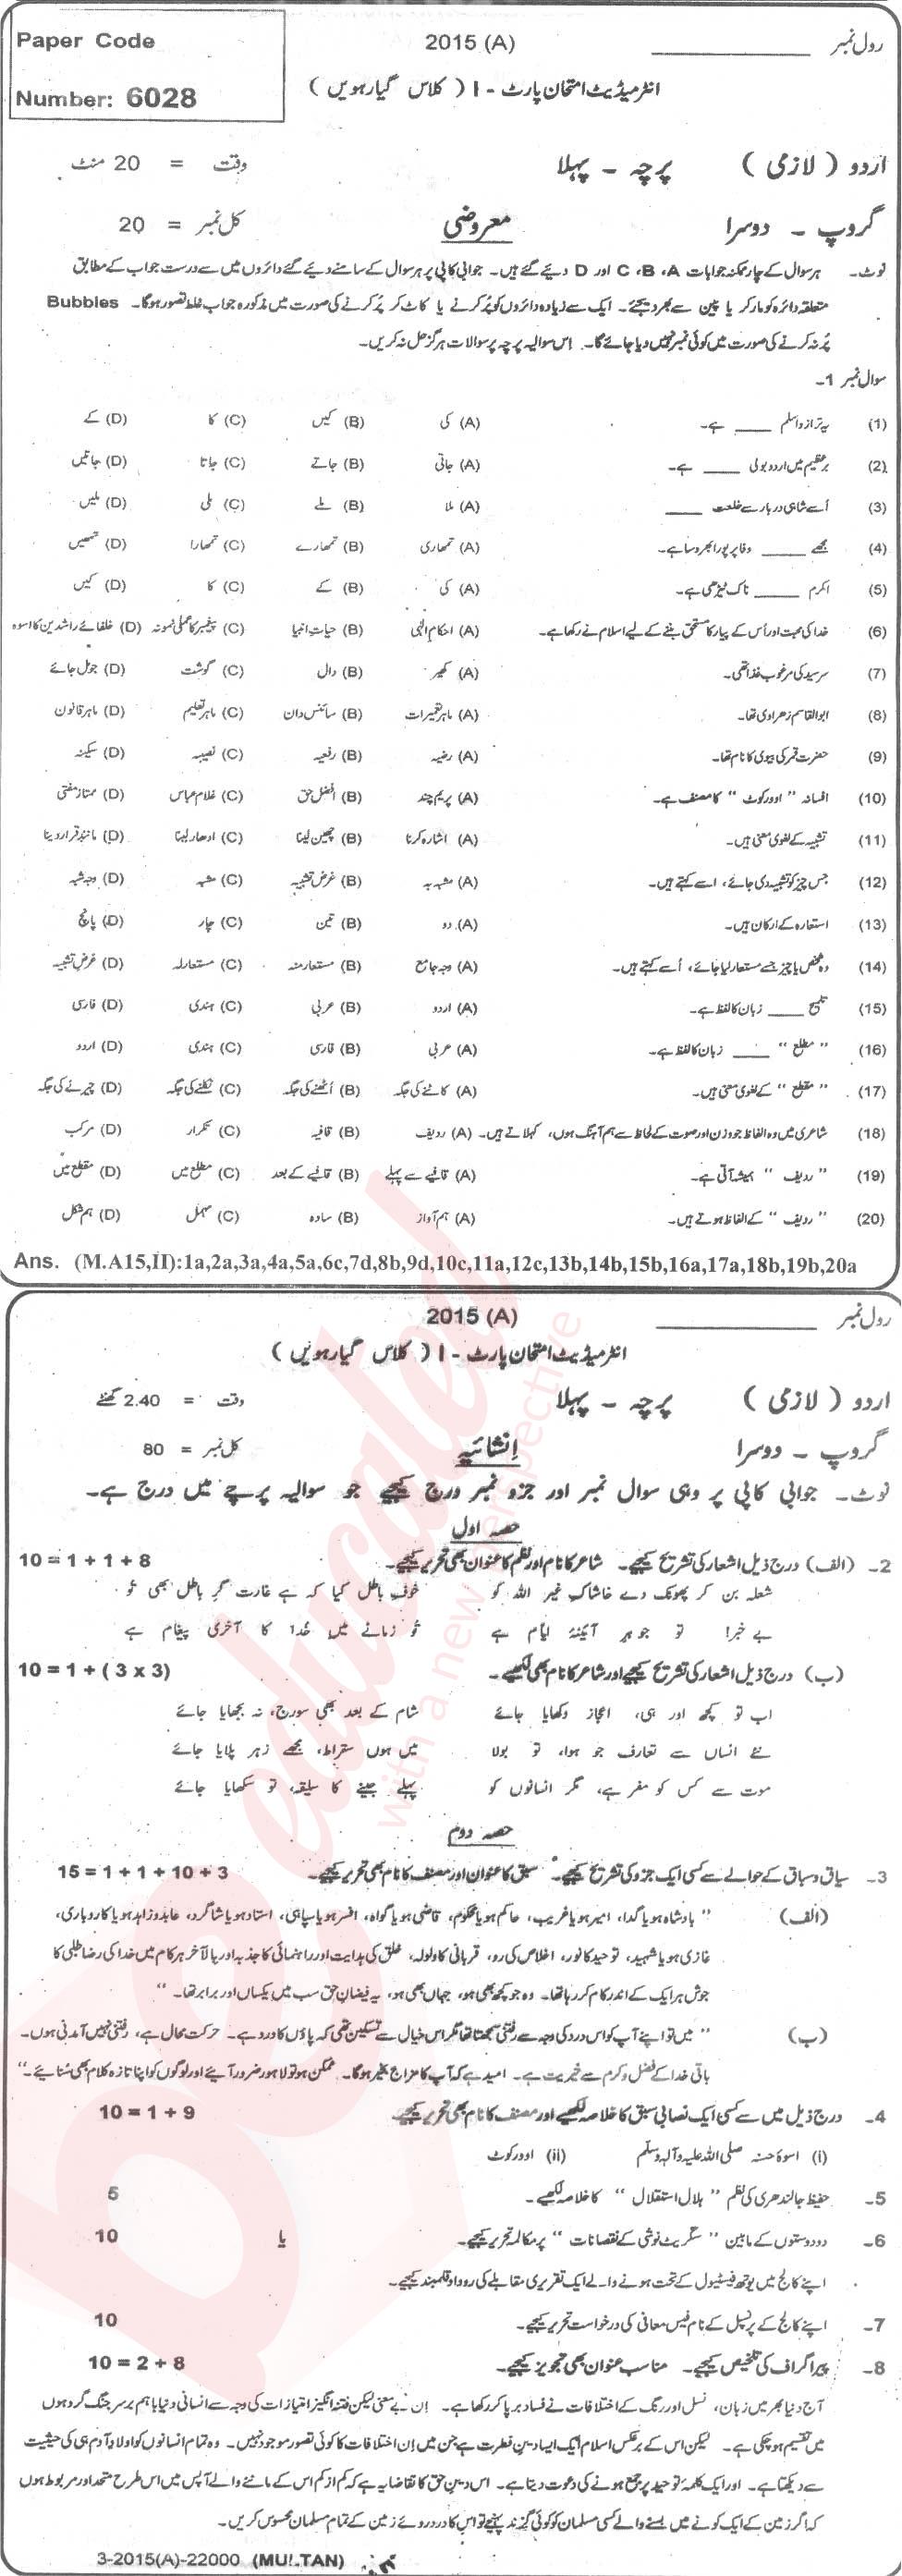 Paper Code
Number: 6028
2015 (A)
رول نمبر
انٹرمیڈیٹ امتحان پارٹ - I ( کلاس گیارہویں )
اردو ( لازمی ) پرچہ - پہلا وقت = 20 منٹ
گروپ - دوسرا معروضی کل نمبر = 20
نوٹ۔ ہر سوال کے چار ممکنہ جوابات A، B، C اور D دیئے گئے ہیں۔ جوابی کاپی پر ہر سوال کے سامنے دیئے گئے دائروں میں سے درست جواب کے مطابق
متعلقہ دائرہ کو مارکر یا پین سے بھر دیجئے۔ ایک سے زیادہ دائروں کو پُر کرنے یا کاٹ کر پُر کرنے کی صورت میں مذکورہ جواب غلط تصور ہوگا۔ Bubbles
پُر نہ کرنے کی صورت میں کوئی نمبر نہیں دیا جائے گا۔ اس سوالیہ پرچہ پر سوالات ہرگز حل نہ کریں۔
سوال نمبر 1-
(1) یہ ترازو اسلم ____ ہے۔ (A) کی (B) کیں (C) کا (D) کے
(2) برعظیم میں اردو بولی ____ ہے۔ (A) جاتی (B) جاتے (C) جاتا (D) جاتیں
(3) اُسے شاہی دربار سے خلعت ____ (A) ملا (B) ملے (C) ملی (D) ملیں
(4) مجھے ____ وفا پر پورا بھروسا ہے۔ (A) تمھاری (B) تمھارے (C) تمھارا (D) تمھیں
(5) اکرم ____ ناک ٹیڑھی ہے۔ (A) کی (B) کے (C) کا (D) کیں
(6) خدا کی محبت اور اُس کے پیار کا مستحق بننے کے لیے اسلام نے رکھا ہے۔ (A) احکام الٰہی (B) حیات انبیا (C) پیغمبر کا عملی نمونہ (D) خلفائے راشدین کا اسوہ
(7) سرسید کی مرغوب غذا تھی۔ (A) کھیر (B) دال (C) گوشت (D) جو مل جائے
(8) ابوالقاسم زھراوی تھا۔ (A) ماہر تعمیرات (B) سائنس دان (C) ماہر تعلیم (D) ماہر قانون
(9) حضرت قمر کی بیوی کا نام تھا۔ (A) رضیہ (B) رفعیہ (C) نصیبہ (D) سکینہ
(10) افسانہ " اوورکوٹ " کا مصنف ہے۔ (A) پریم چند (B) افضل حق (C) غلام عباس (D) ممتاز مفتی
(11) تشبیہ کے لغوی معنی ہیں۔ (A) اشارہ کرنا (B) چھین لینا (C) ادھار لینا (D) مانند قرار دینا
(12) جس چیز کو تشبیہ دی جائے، اسے کہتے ہیں۔ (A) مشبہ بہ (B) غرض تشبیہ (C) مشبہ (D) وجہ شبہ
(13) استعارہ کے ارکان ہیں۔ (A) دو (B) تین (C) چار (D) پانچ
(14) وہ شخص یا چیز جسے مستعار لیا جائے، اُسے کہتے ہیں۔ (A) وجہ جامع (B) مستعار منہ (C) مستعار لہ (D) غرض تشبیہ
(15) تلمیح ____ زبان کا لفظ ہے۔ (A) اردو (B) عربی (C) ہندی (D) فارسی
(16) " مطلع " ____ زبان کا لفظ ہے۔ (A) عربی (B) فارسی (C) ہندی (D) اردو
(17) " مقطع " کے لغوی معنی ہیں۔ (A) کاٹنے کی جگہ (B) اُٹھنے کی جگہ (C) نکلنے کی جگہ (D) چیرنے کی جگہ
(18) شاعری میں وہ الفاظ جو وزن اور صوت کے لحاظ سے ہم آہنگ ہوں، کہلاتے ہیں۔ (A) ردیف (B) قافیہ (C) تکرار (D) مرکب
(19) " ردیف " ہمیشہ آتی ہے۔ (A) قافیے سے پہلے (B) قافیے کے بعد (C) مطلع میں (D) مقطع میں
(20) " ردیف " کے الفاظ ہوتے ہیں۔ (A) ہم آواز (B) سادہ (C) مہمل (D) ہم شکل
Ans. (M.A15,II):1a,2a,3a,4a,5a,6c,7d,8b,9d,10c,11a,12c,13b,14b,15b,16a,17a,18b,19b,20a
2015 (A)
رول نمبر
انٹرمیڈیٹ امتحان پارٹ - I ( کلاس گیارہویں )
اردو ( لازمی ) پرچہ - پہلا وقت = 2.40 گھنٹے
گروپ - دوسرا اِنشائیہ کل نمبر = 80
نوٹ۔ جوابی کاپی پر وہی سوال نمبر اور جزو نمبر درج کیجیے جو سوالیہ پرچے میں درج ہے۔
حصہ اول
2- (الف) درج ذیل اشعار کی تشریح کیجیے۔ شاعر کا نام اور نظم کا عنوان بھی تحریر کیجیے۔ 10 = 1 + 1 + 8
شعلہ بن کر پھونک دے خاشاکِ غیر اللہ کو خوفِ باطل کیا کہ ہے غارت گرِ باطل بھی تُو
بے خبر! تو جوہرِ آئینۂ ایام ہے تُو زمانے میں خُدا کا آخری پیغام ہے
(ب) درج ذیل اشعار کی تشریح کیجیے اور شاعر کا نام بھی لکھیے۔ 10 = 1 + ( 3 x 3)
اب تو کچھ اور ہی، اعجاز دکھایا جائے شام کے بعد بھی سورج، نہ بجھایا جائے
نئے انساں سے تعارف جو ہوا، تو بولا میں ہوں سقراط، مجھے زہر پلایا جائے
موت سے کس کو مفر ہے، مگر انسانوں کو پہلے جینے کا سلیقہ، تو سکھایا جائے
حصہ دوم
3- سیاق و سباق کے حوالے سے کسی ایک جزو کی تشریح کیجیے۔ سبق کا عنوان اور مصنف کا نام بھی تحریر کیجیے۔ 15 = 1 + 1 + 10 + 3
(الف) " بادشاہ ہو یا گدا، امیر ہو یا غریب، حاکم ہو یا محکوم، قاضی ہو یا گواہ، افسر ہو یا سپاہی، استاد ہو یا شاگرد، عابد و زاہد ہو یا کاروباری،
غازی ہو یا شہید، توحید کا نور، اخلاص کی رو، قربانی کا ولولہ، خلق کی ہدایت اور راہنمائی کا جذبہ اور بالآخر ہر کام میں خدا کی رضا طلبی کا
جوش ہر ایک کے اندر کام کر رہا تھا۔ وہ جو کچھ بھی ہو، جہاں بھی ہو، یہ فیضان حق سب میں یکساں اور برابر تھا۔ "
(ب) " میں تو اپنے آپ کو اس درد کی وجہ سے رفتنی سمجھتا تھا مگر اس خیال سے تسکین تھی کہ پاؤں کا درد ہے۔ حرکت محال ہے، رفتنی نہیں آمدنی ہوں۔
باقی خدا کے فضل و کرم سے خیریت ہے۔ امید ہے کہ آپ کا مزاج بخیر ہوگا۔ ممکن ہو تو لاہور ضرور آیئے اور لوگوں کو اپنا تازہ کلام بھی سُنائیے۔ "
4- درج ذیل میں سے کسی ایک نصابی سبق کا خلاصہ لکھیے اور مصنف کا نام بھی تحریر کیجیے۔ 10 = 1 + 9
(i) اسوۂ حسنہ صلی اللہ علیہ وآلہٖ وسلم (ii) اوورکوٹ
5- حفیظ جالندھری کی نظم " ہلالِ استقلال " کا خلاصہ لکھیے۔ 5
6- دو دوستوں کے مابین " سگریٹ نوشی کے نقصانات " پر مکالمہ تحریر کیجیے۔ یا 10
اپنے کالج میں یوتھ فیسٹیول کے تحت ہونے والے ایک تقریری مقابلے کی روداد قلمبند کیجیے۔
7- اپنے کالج کے پرنسپل کے نام فیس معافی کی درخواست تحریر کیجیے۔ 10
8- پیراگراف کی تلخیص کیجیے۔ مناسب عنوان بھی تجویز کیجیے۔ 10 = 2 + 8
آج دنیا بھر میں زبان، نسل اور رنگ کے اختلافات نے فساد برپا کر رکھا ہے۔ اِن بے معنی لیکن فتنہ انگیز امتیازات کی وجہ سے انسانی دنیا باہم برسر جنگ گروہوں
میں تقسیم ہو چکی ہے۔ لیکن اس کے برعکس اسلام ایک ایسا دینِ فطرت ہے جن میں اِن اختلافات کا کوئی تصور موجود نہیں۔ وہ تمام انسانوں کو اولادِ آدم ہی کی حیثیت
سے دیکھتا ہے۔ اور ایک کلمۂ توحید پر جمع ہونے کی دعوت دیتا ہے۔ اس دینِ حق کا تقاضا یہ ہے کہ کم از کم اس کے ماننے والے آپس میں اس طرح متحد اور مربوط ہوں
کہ اگر زمین کے ایک کونے میں بسنے والے کسی مسلمان کو کوئی گزند پہنچے تو اس کا درد روئے زمین کے تمام مسلمان محسوس کریں۔
3-2015(A)-22000 (MULTAN)
educated
with a new perspective